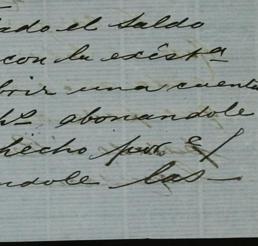 ado el saldo
con la exista
brir una cuenta
abonandole
hecho por El
ndole las